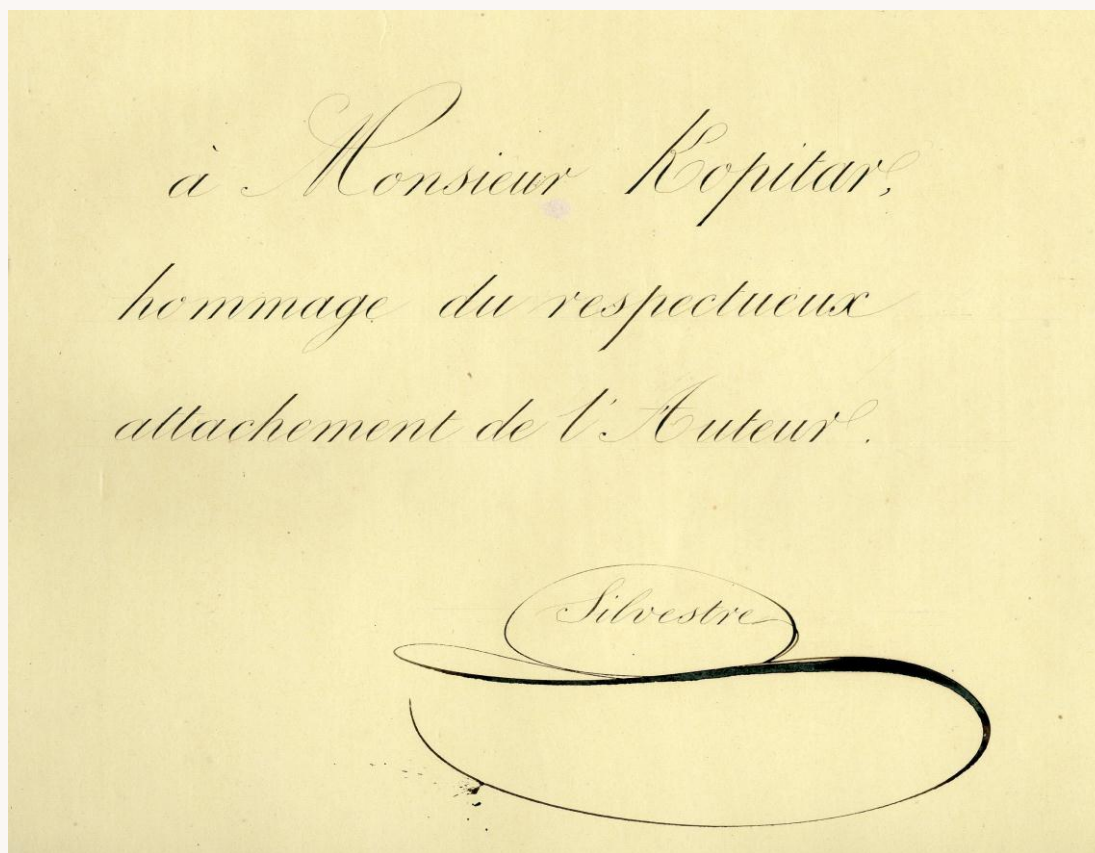 à Monsieur Kopitar,
hommage du respectueux
attachement de l'Auteur.
Silvestre